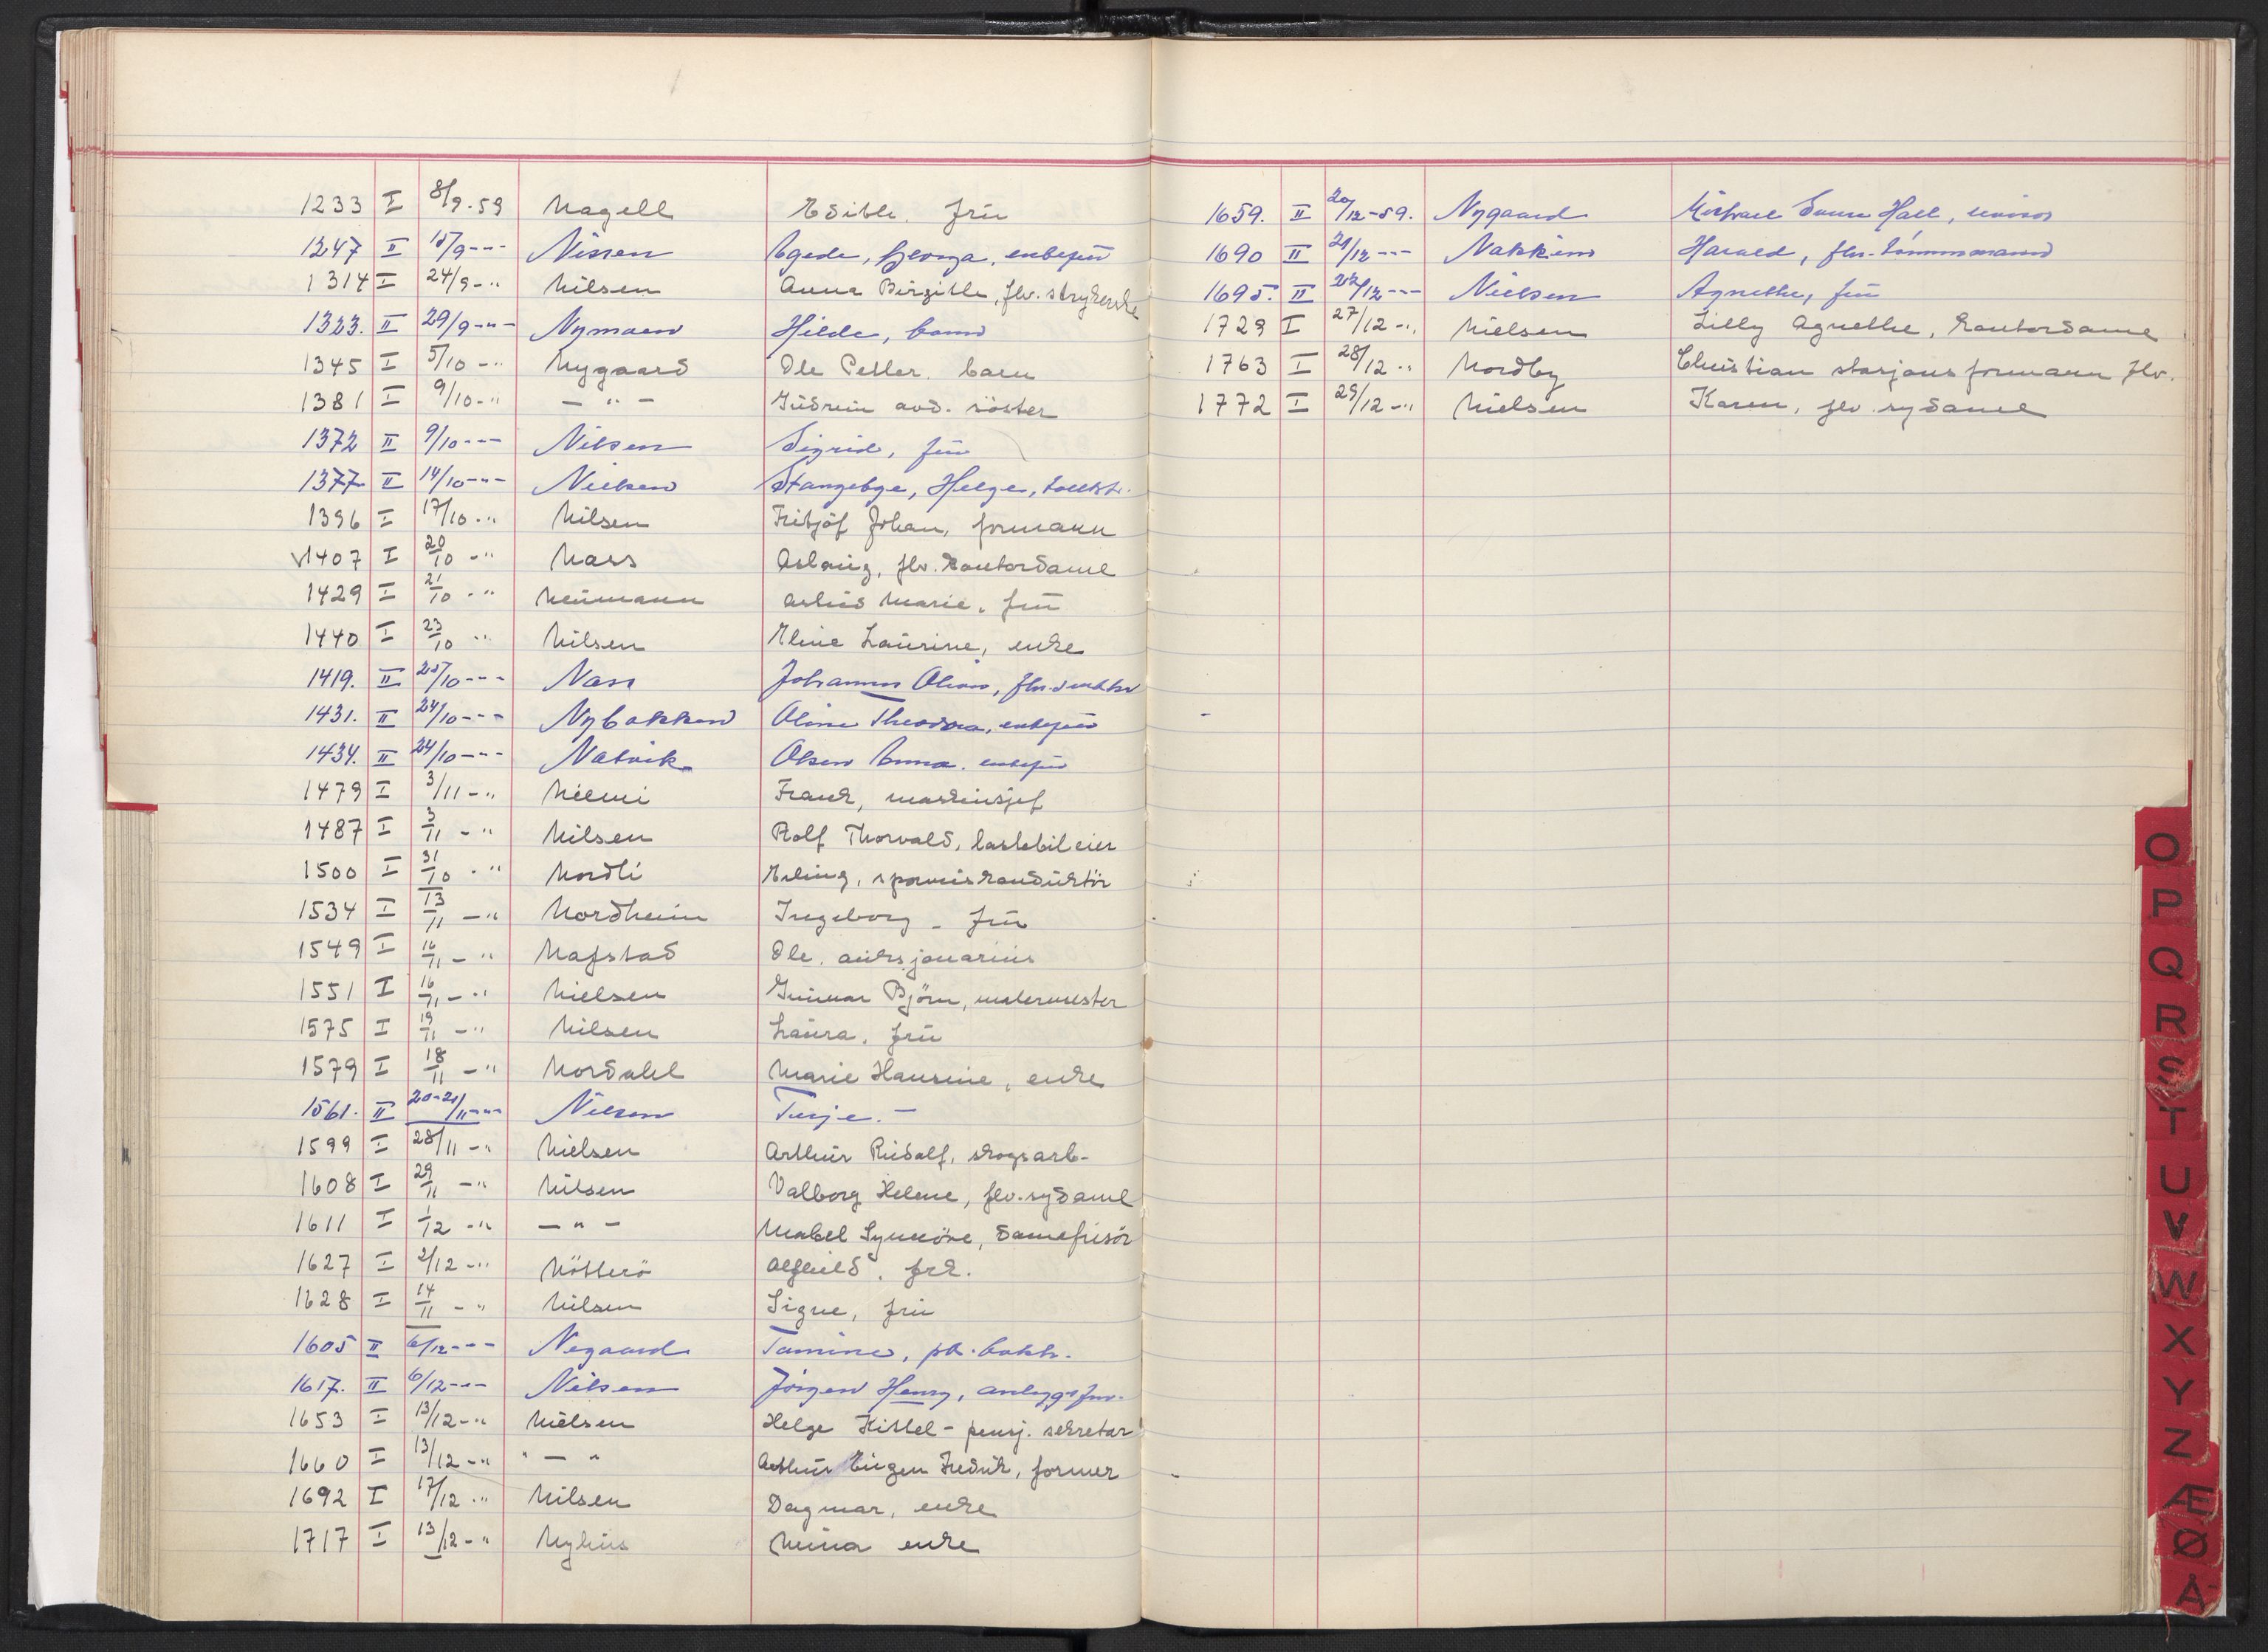 1233 I 8/9-59 Nagell Edith. frü
1247 II 15/9-"- Nissen Egede, Georga, enkefrü
1314 I 24/9-" Nilsen Anna Birgithe, flv. strykerske
1323. II 29/9-"- Nymoen Hilde, barn
1345 I 5/10-" Nygaard Ole Petter. barn
1381 I 9/10-" -"- Güdrün avd. söster
1372 II 9/10-"- Nilsen Sigrid, frü
1377 II 14/10-"- Nielsen Stangebye, Helge,
1396 I 17/10-" Nilsen Fritjöf Johan, formann
V1407 I 20/10-" Næss Aslaüg, flv. kontordame
1429 I 21/10-" Neümann Marie, frü
1440 I 23/10-" Nilsen Eline Laürine, enke
1419. II 23/10-"- Næss Johannes
1431. II 24/10-"- Nybakken Oline Theodora, enkefrü
1434. II 24/10-"- Natvik Olsen Anna. enkefrü
1479 I 3/11-" Niemi Frank, maskinsjef
1487 I 3/11-" Nilsen Rolf Thorvald, lastebileier
1500 I 31/10-" Nordli Erling, sporveiskondüktör
1534 I 13/11-" Nordheim Ingeborg - frü
1549 I 16/11-" Nafstad Ole. aüksjonariüs
1551 I 16/11-" Nielsen Günnar Björn, malermester
1575 I 19/11-" Nilsen Laüra, frü
1579 I 18/11-" Nordahl Marie Hansine, enke
1561. II 20-21/11-"- Nilsen Terje. -
1599 I 28/11-" Nielsen Arthür Rüdolf, skogsarb-
1608 I 29/11-" Nilsen Valborg Helene, flv. sydame
1611 I 1/12-" -"- Mabel Synnöve, damefrisör
1627 I 2/12-" Nötterö Alfhild, frk.
1628 I 14/11-" Nilsen Signe, frü
1605 II 6/12-"- Negaard Tomine,
1617. II 6/12-"- Nilsen Jörgen Henry,
1653 I 13/12-" Nielsen Helge Kittel - pensj. sekretær
1660 I 13/12-" "-" Arthür Eügen Fredrik, former
1692 I 17/12-" Nilsen Dagmar, enke
1717 I 13/12-" Nyhüs Mina enke
1659. II 20/12-59. Nygaard Michael Hall, revisor
1690 II 21/12-"- Nakkim Harald,
1695. II 22/12-"- Nielsen Agnethe, frü
1729 I 27/12-" Nielsen Lilly Agnethe, kontordame
1763 I 28/12-" Nordby Christian stasjonsformann flv.
1772 I 29/12-" Nielsen Karen, flv. sydame
O
P
Q
R
S
T
U
V
W
X
Y
Z
Æ
Ø
Å